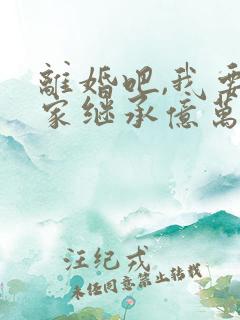 離婚吧,我要
家继承億萬
汪纪戎
未经同意禁止转载